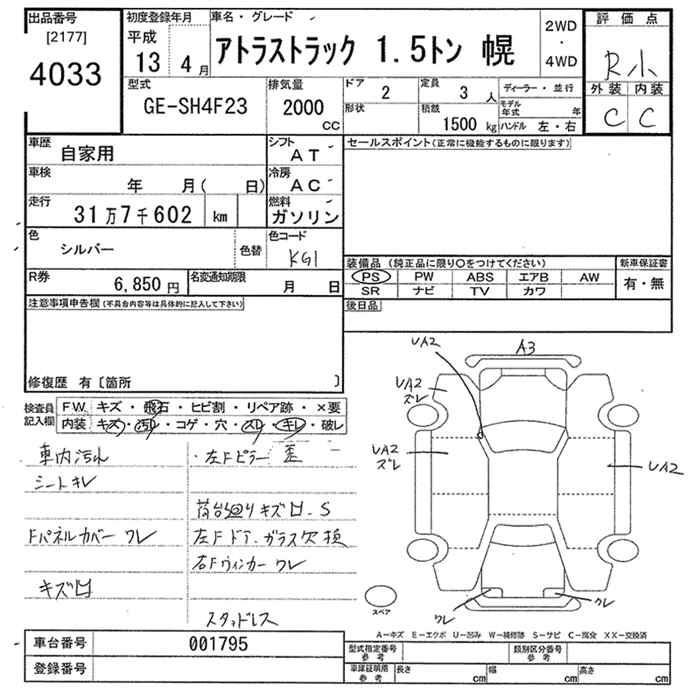 出品番号
[2177]
4033
初度登録年月
平成
13 4月
車名・グレード
アトラストラック 1.5トン 幌
2WD
・
4WD
評価点
R小
外装 内装
C C
型式
GE-SH4F23
排気量
2000
CC
ドア 2
形状
定員 3人
積載
1500kg
ディーラー・並行
モデル年式 年
ハンドル 左・右
車歴
自家用
シフト
AT
車検
年 月( 日)
冷房
AC
走行
31万7千602 km
燃料
ガソリン
色
シルバー
色替
色コード
KG1
R券
6,850円
名変通知期限
月 日
セールスポイント(正常に機能するものに限ります)
装備品 (純正品に限り○をつけてください)
PS PW ABS エアB AW
SR ナビ TV カワ
新車保証書
有・無
後日品
注意事項申告欄(不具合内容等は具体的に記入して下さい)
修復歴 有〔箇所 〕
検査員記入欄
F.W. キズ・飛石・ヒビ割・リペア跡・×要
内装 キズ・汚レ・コゲ・穴・スレ・キレ・破レ
車内汚れ
シートキレ
Fパネルカバー ワレ
キズ凹
・左Fピラー 歪
荷台廻りキズ凹.S
左Fドア.ガラス欠損
右Fウィンカー ワレ
スタッドレス
UA2
A3
UA2
ズレ
UA2
ズレ
UA2
ワレ
ワレ
スペア
A-キズ E-エクボ U-凹み W-補修跡 S-サビ C-腐食 XX-交換済
車台番号
001795
登録番号
型式指定番号
参考
類別区分番号
参考
車庫証明用
参考
長さ cm
幅 cm
高さ cm